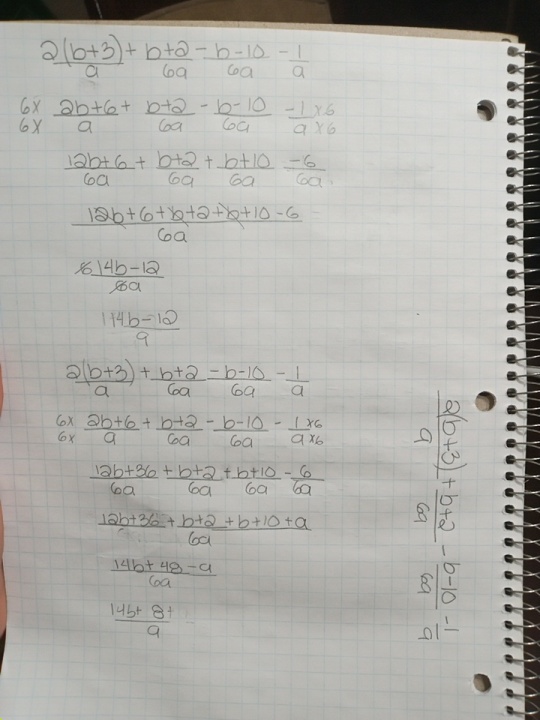 2(b+3)/a + b+2/6a - b-10/6a - 1/a
6x/6x 2b+6/a + b+2/6a - b-10/6a -1/a x6/x6
12b+6/6a + b+2/6a + b+10/6a -6/6a
12b+6+b+2+b+10-6/6a
6 14b-12/6a
1+4b-12/a
2(b+3)/a + b+2/6a - b-10/6a - 1/a
6x/6x 2b+6/a + b+2/6a - b-10/6a - 1/a x6/x6
12b+36/6a + b+2/6a + b+10/6a - 6/6a
12b+36+b+2+b+10+a/6a
14b+48-a/6a
14b+8+/a
2(b+3)/a + b+2/6a - b-10/6a -1/a